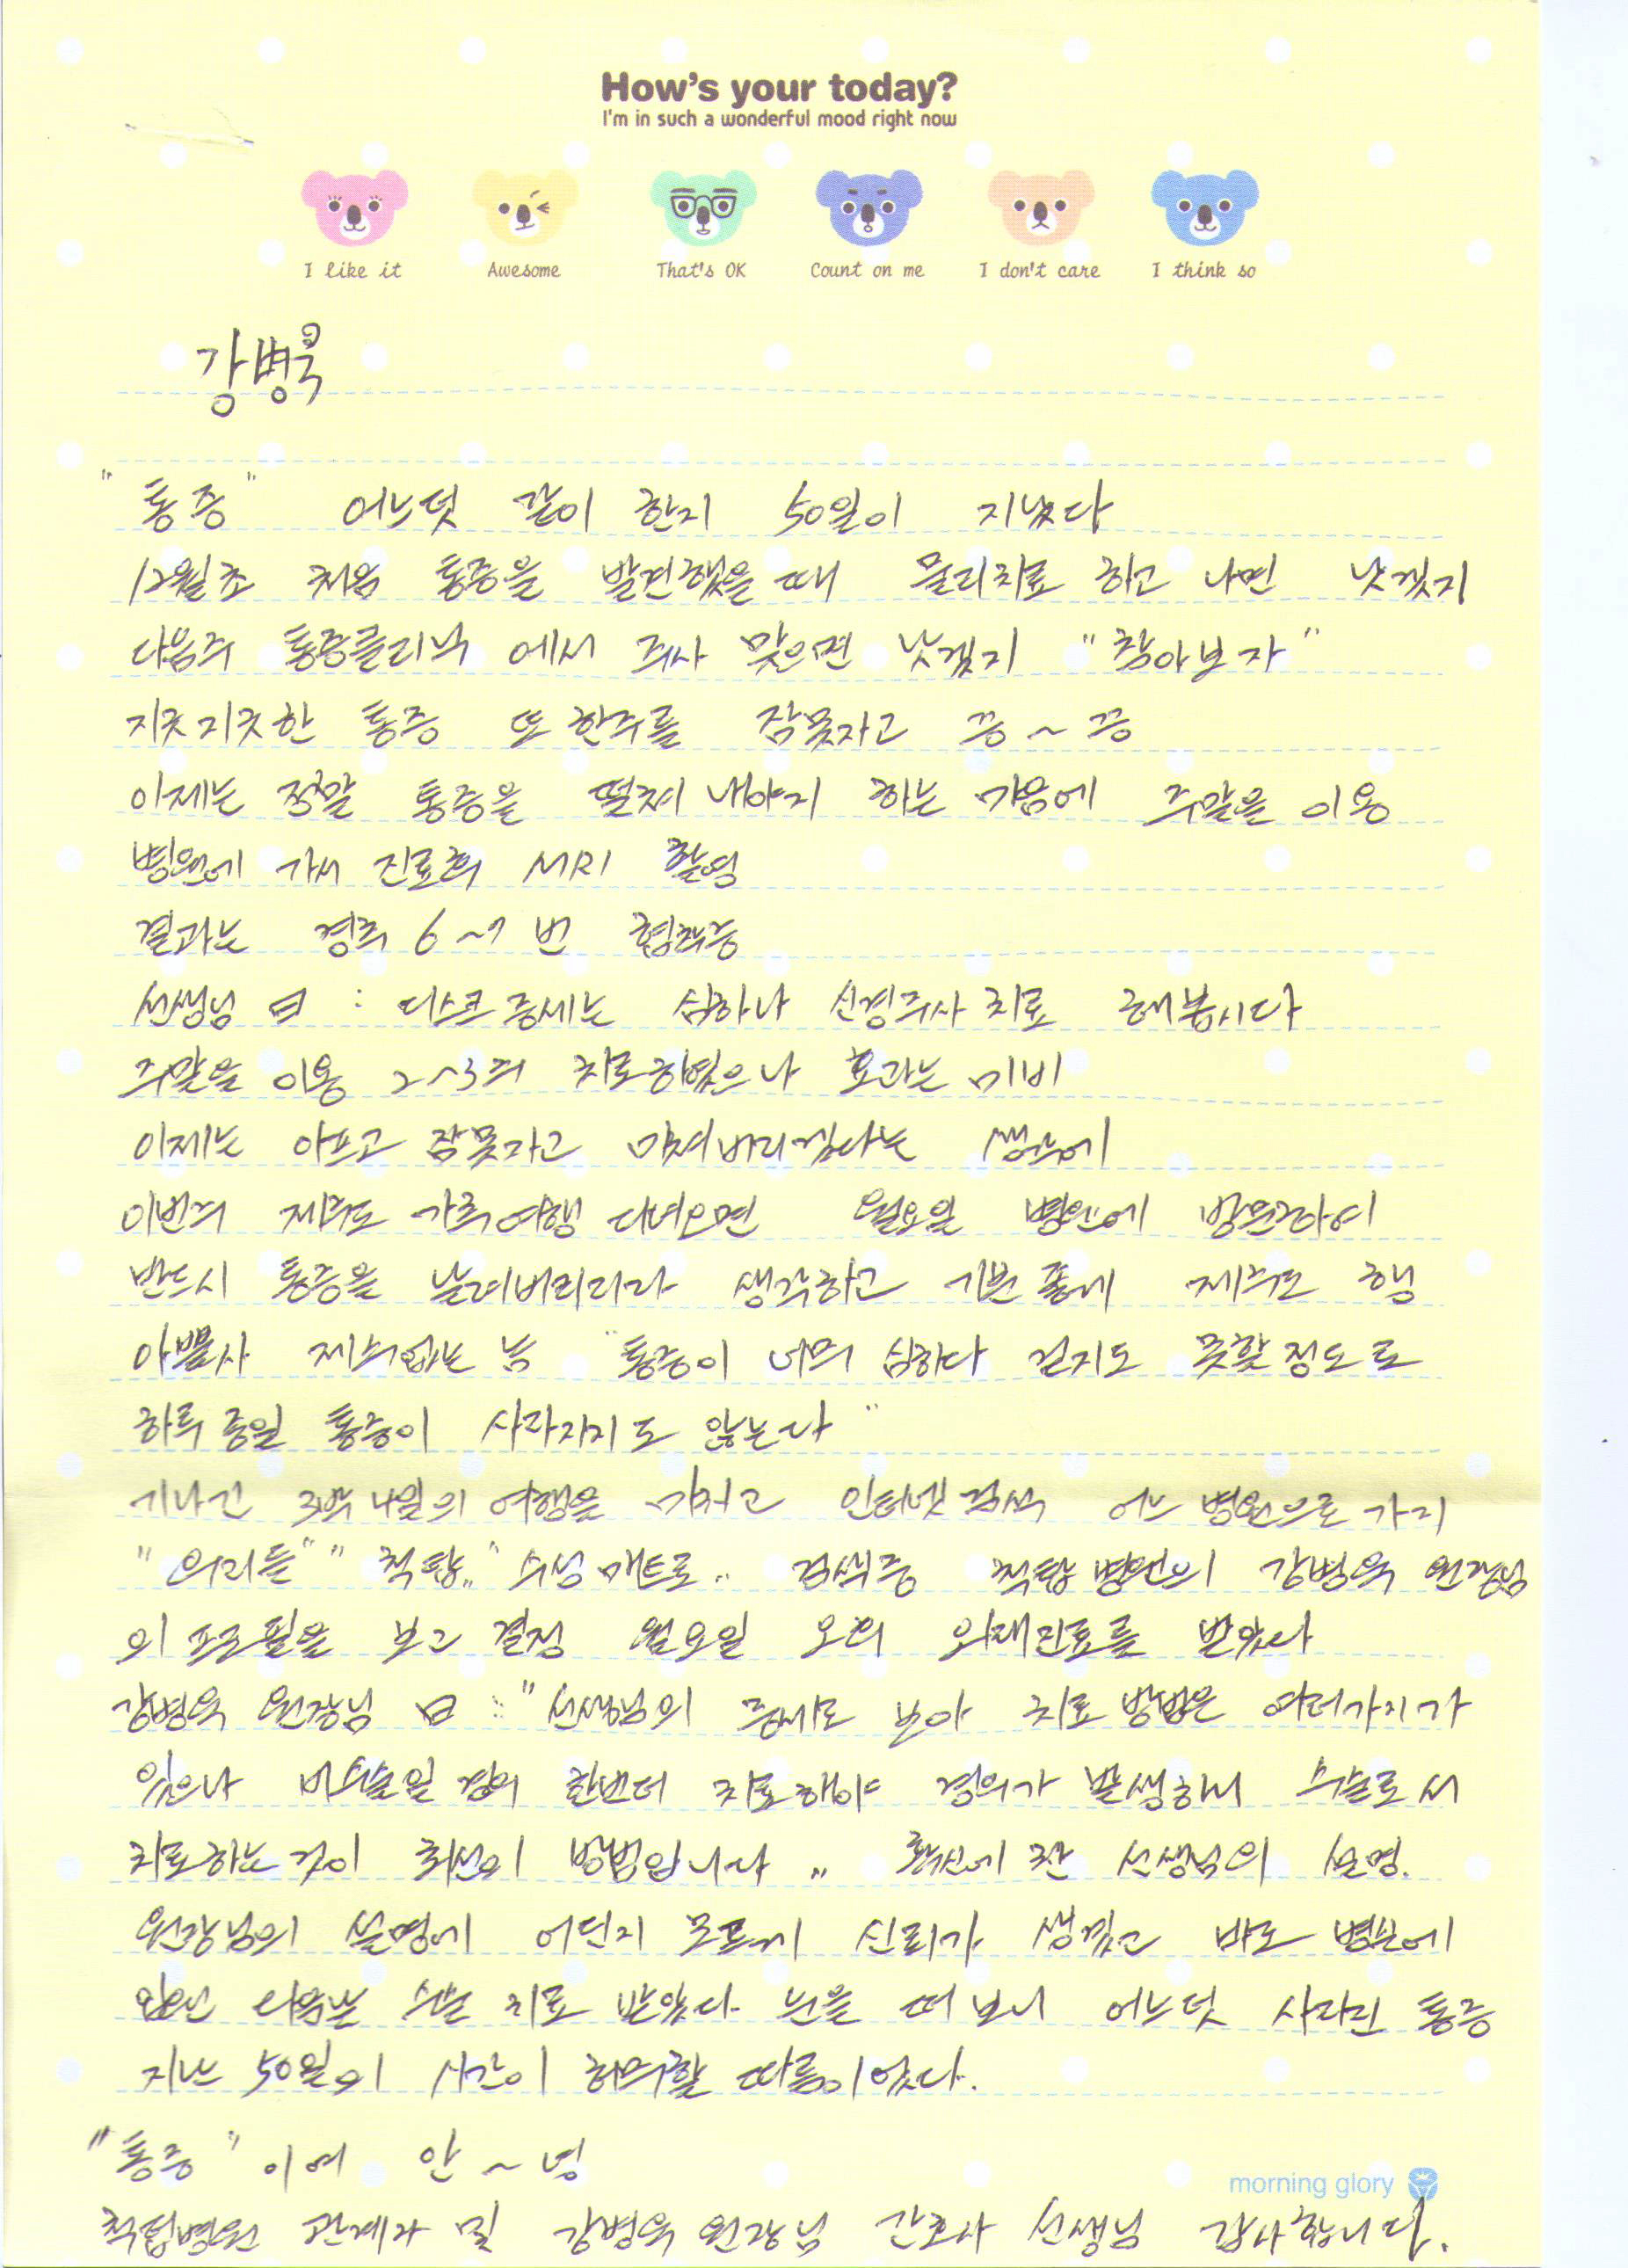 How's your today?
I'm in such a wonderful mood right now
I like it Awesome That's OK Count on me I don't care I think so
강병욱
"통증" 어느덧 같이 한지 50일이 지났다
12월초 처음 통증을 발견했을 때 물리치료 하고 나면 낫겠지
다음주 통증클리닉 에서 주사 맞으면 낫겠지 "참아보자"
지긋지긋한 통증 또 한주를 잠못자고 끙~끙
이제는 정말 통증을 떨쳐 내야지 하는 마음에 주말을 이용
병원에 가서 진료후 MRI 촬영
결과는 경추 6~7 번 협착증
선생님 曰 : 디스크 증세는 심하나 신경주사 치료 해봅시다
주말을 이용 2~3주 치료하였으나 효과는 미비
이제는 아프고 잠못자고 미쳐버리겠다는 생각에
이번주 제주도 가족여행 다녀오면 월요일 병원에 방문하여
반드시 통증을 날려버리리라 생각하고 기쁜 품에 제주도 행
아뿔사 재수없는 놈 "통증이 너무 심하다 걷지도 못할 정도로
하루 종일 통증이 사라지지도 않는다"
기나긴 3박 4일의 여행을 마치고 인터넷 검색 어느 병원으로 가지
"우리들" "척탑" 수성 메트로.. 검색중 척탑병원의 강병욱 원장님
의 프로필을 보고 결정 월요일 오후 외래진료를 받았다
강병욱 원장님 曰 : "선생님의 증세로 보아 치료 방법은 여러가지가
있으나 비수술일 경우 한번더 치료해야 경우가 발생하니 수술로서
치료하는 것이 최선의 방법입니다" 확신에 찬 선생님의 설명.
원장님의 설명에 어딘지 모르게 신뢰가 생겼고 바로 병원에
입원 다음날 수술 치료 받았다 눈을 떠 보니 어느덧 사라진 통증
지난 50일의 시간이 허무할 따름이었다.
"통증" 이여 안~녕
morning glory
척탑병원 관계자 및 강병욱 원장님 간호사 선생님 감사합니다.